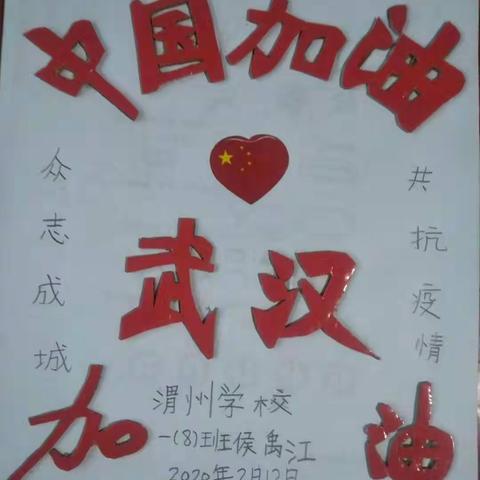 中国加油
众志成城
共抗疫情
武汉
加油
渭州学校
一(8)班侯禹江
2020年2月12日